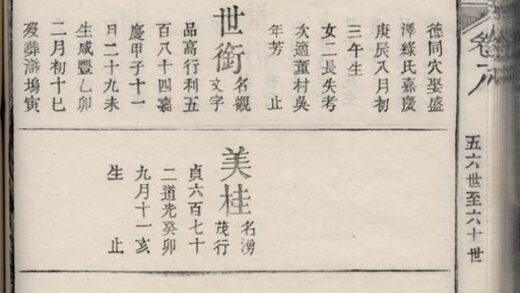 卷八
五六世至六十世
德同穴娶盛
澤氏嘉慶
庚辰八月初
三午生
女二長失考
次適童村吳
年芳 止
世銜 名觀
文字
品高行利五
百八十四嘉
慶甲子十一
日二十九未
生咸豐乙卯
二月初十巳
歿葬滸塢寅
美桂 名湧
茂行
貞六百七十
二道光癸卯
九月十一亥
生 止